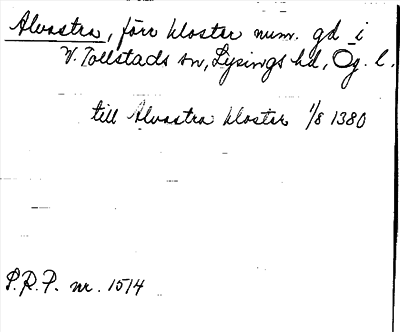 Alvastra, förr kloster num. gd i
V. Tollstads sn, Lysings hd, Ög. l.
till Alvastra kloster 1/8 1380
S.R.P. nr. 1514